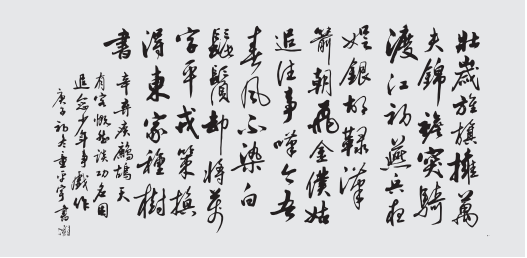 壮岁旌旗擁萬
夫錦襜突騎
渡江初燕兵夜
娖銀胡䩮漢
箭朝飛金僕姑
追往事嘆今吾
春風不染白
髭鬚却将萬
字平戎策换
得東家種樹
書
辛弃疾鹧鸪天
有客慨然談功名因
追念少年事戲作
庚子初冬童平宇書